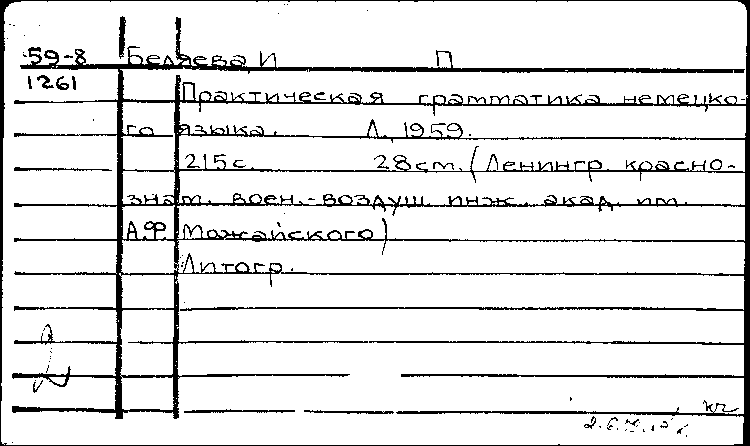 59-8 Беляева, И П
1261
Практическая грамматика немецко-
го языка. Л., 1959.
215 с. 28 см. (Ленингр. красно-
знам. воен.-воздуш. инж. акад. им.
А.Ф. Можайского)
Литогр.
2